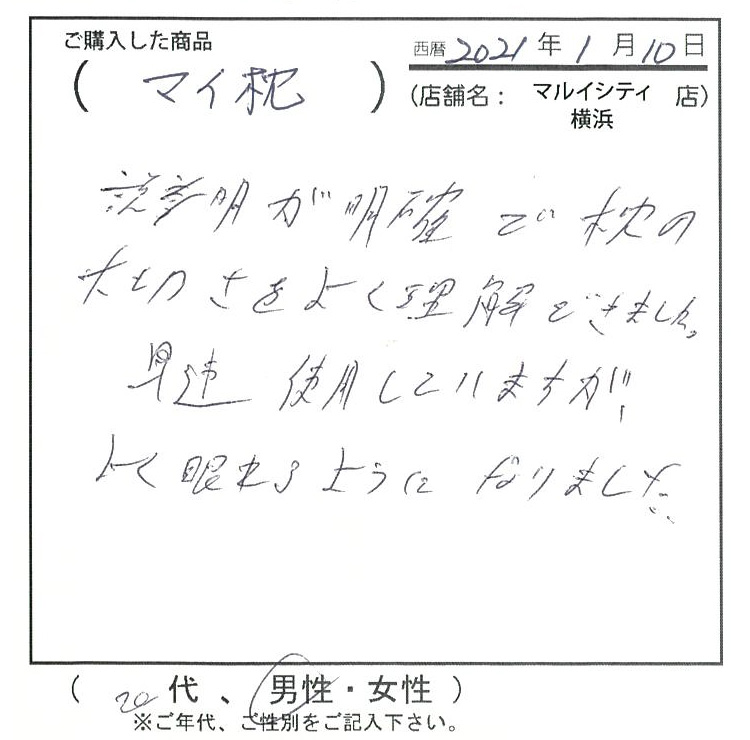 ご購入した商品
西暦 2021 年 1 月 10 日
( マイ枕 )
(店舗名： マルイシティ横浜 店)
説明が明確で枕の
大切さをよく理解できました。
早速 使用していますが、
よく眠れるように なりました。
( 20 代 、 男性・女性 )
※ご年代、ご性別をご記入下さい。